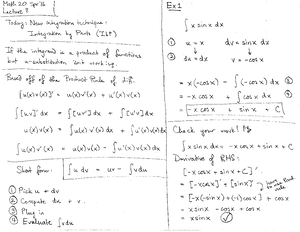 Math 20 Spr '16
Lecture 7
Today: New integration technique:
Integration by Parts (IBP)
If the integrand is a product of functions
but u-substitution isn't working.
Based off of the Product Rule of diff.
[u(x)v(x)]' = u(x)v'(x) + u'(x)v(x)
∫[uv]' dx = ∫[uv'] dx + ∫[u'v] dx
u(x)v(x) = ∫u(x)v'(x) dx + ∫u'(x)v(x) dx
∫u(x)v'(x) = u(x)v(x) - ∫u'(x)v(x) dx
Short form: ∫u dv = uv - ∫v du
① Pick u + dv
② Compute du + v.
③ Plug in
④ Evaluate ∫v du
Ex 1
∫x sin x dx
① u = x dv = sin x dx
② du = dx v = -cos x
③ = x(-cos x) - ∫(-cos x) dx
④ = -x cos x + ∫cos x dx
= -x cos x + sin x + C
Check your work!
∫x sin x dx = -x cos x + sin x + C
Derivative of RHS:
[-x cos x + sin x + C]'
= [-x cos x]' + [sin x]'
= [-x(-sin x) + (-1) cos x] + cos x
= x sin x - cos x + cos x
= x sin x